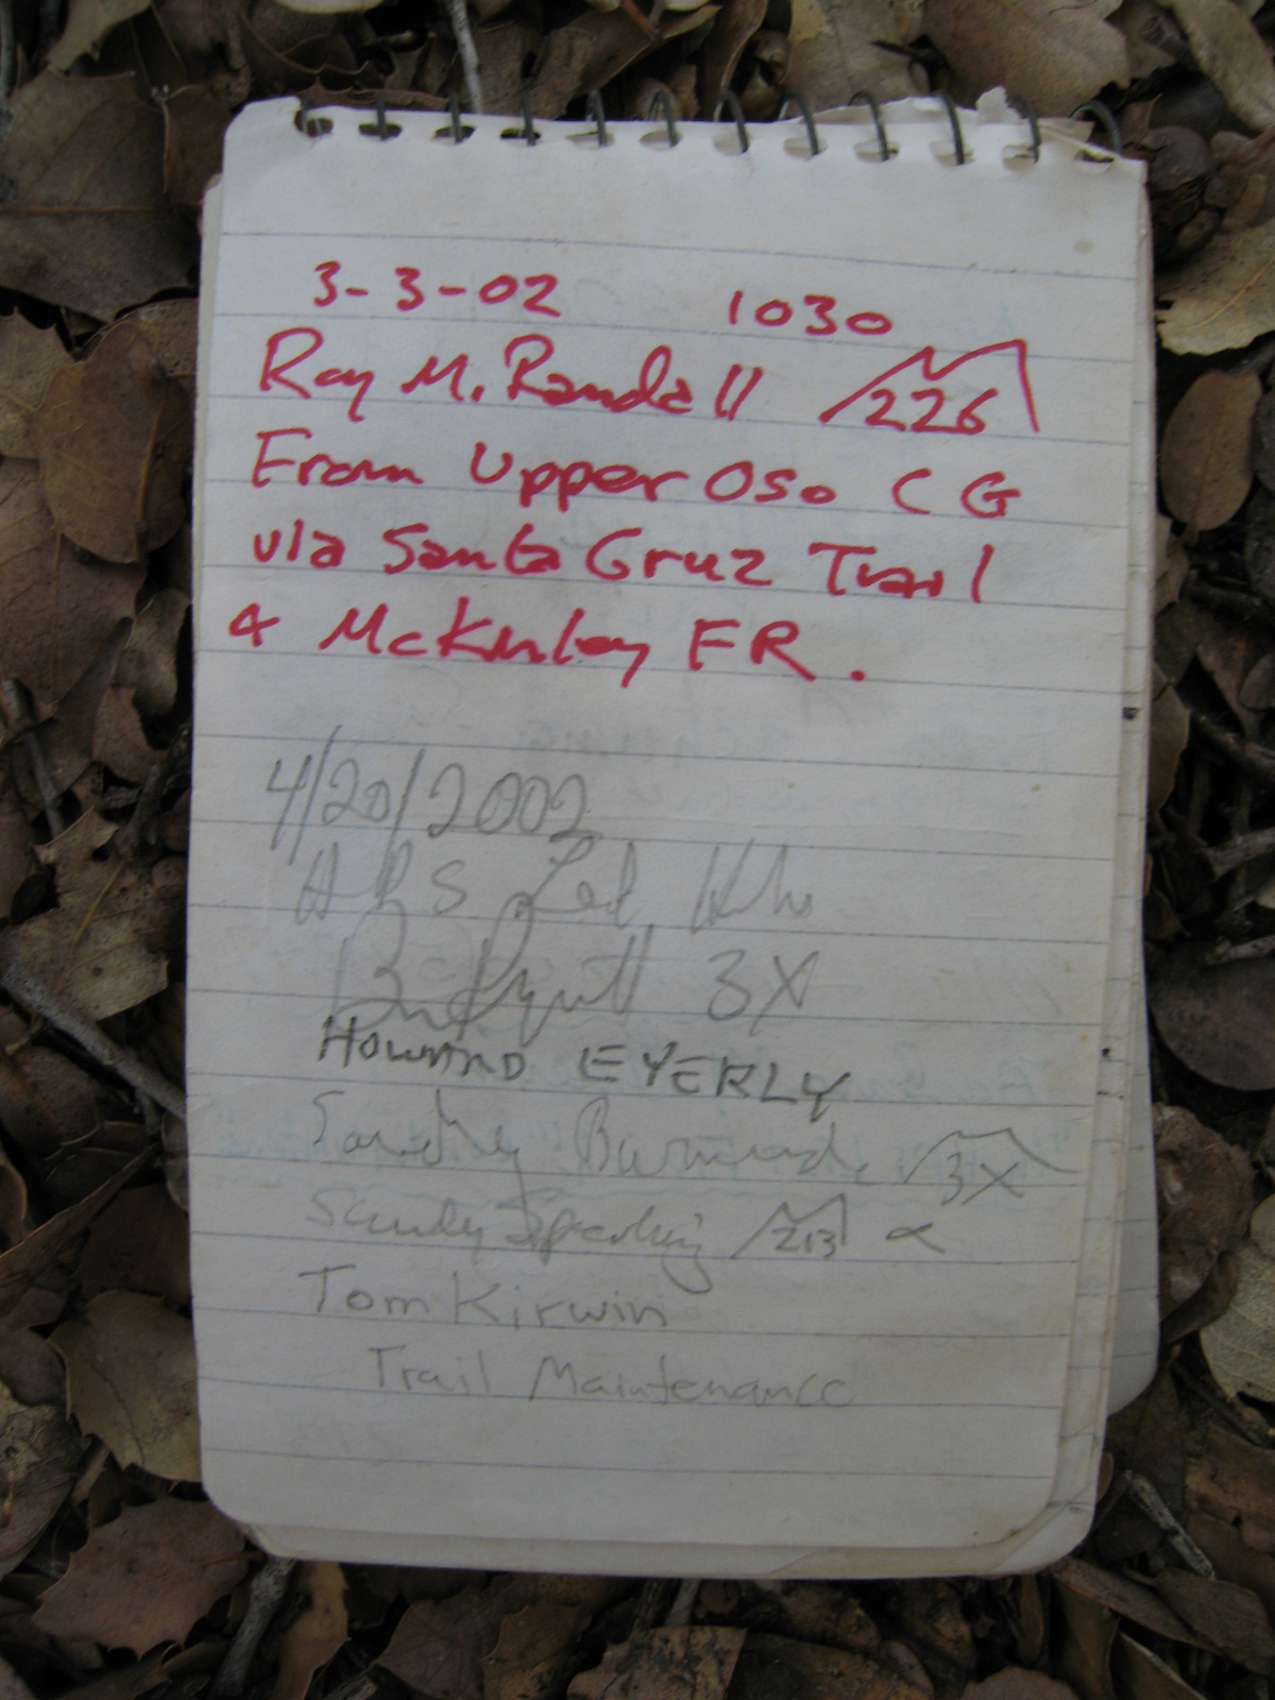 3-3-02 1030
Ray M. Randall 226
From Upper Oso CG
via Santa Cruz Trail
& McKinley FR.
4/20/2002
3X
HOWARD EYERLY
3X
Sandy Sperling 213
Tom Kirwin
Trail Maintenance